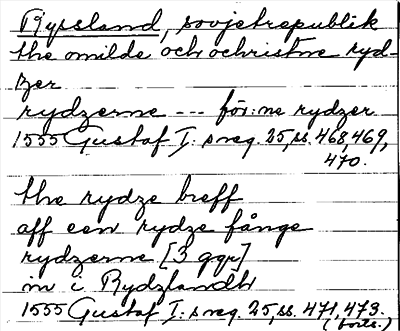 Ryssland, sovjetrepublik
the omilde och ochristne ryd-
zer
rydzerne --- för:ne rydzer
1555 Gustaf I:s reg. 25, ss. 468, 469,
470.
the rydze breff
aff een rydze fånge
rydzerne [3 ggr]
in i Rydzlandh
1555 Gustaf I:s reg. 25, ss. 471, 473.
(forts.)